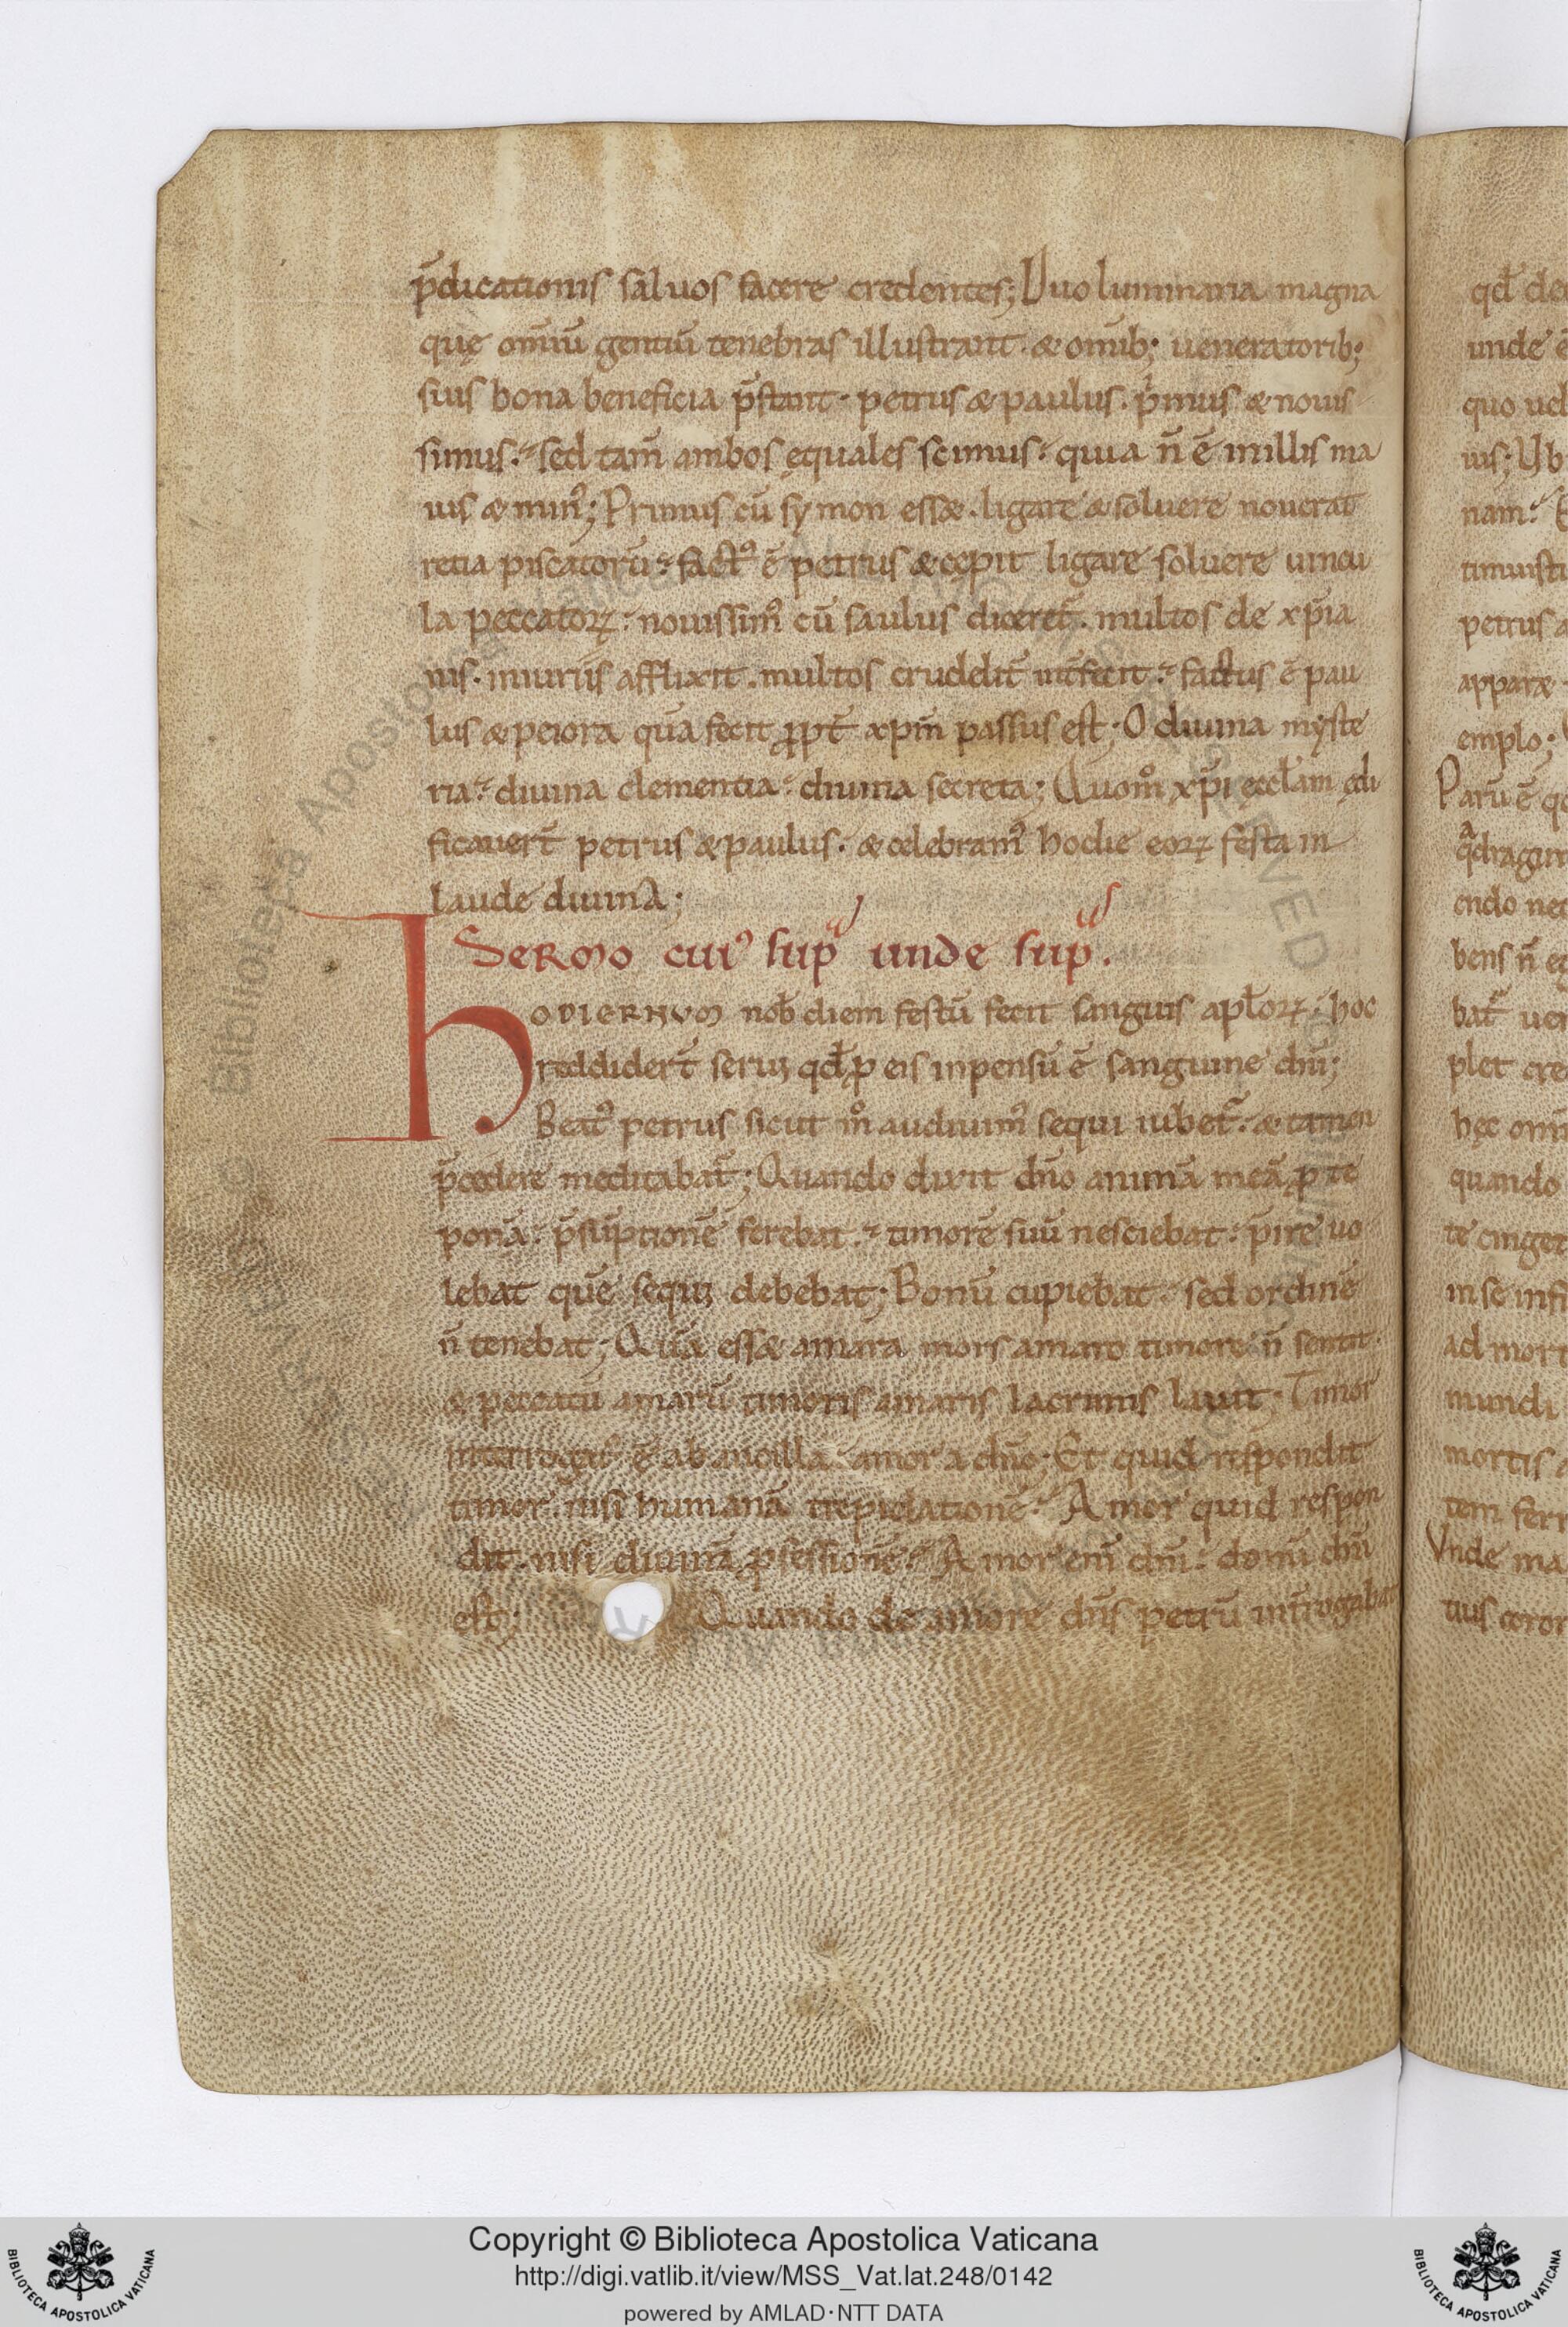 p̄dicationis saluos facere credentes; Duo luminaria magna
quę om̄iū gentiū tenebras illustrant · & om̄ib; ueneratorib;
suis bona beneficia p̄stant · petrus & paulus · p̍mus & nouis
simus · sed tam̄ ambos ęquales scimus · quia n̄ ē in illis ma
ius & min᾿; Primus cū symon ess& · ligare & soluere nouerat
retia piscatorū · fact᾿ ē petrus & cępit ligare soluere uincu
la peccatoꝝ · nouissim᾿ cū saulus diceret̄ · multos de xp̄ia
nis · iniuriis afflixit · multos crudelit̄ int̄fecit · factus ē pau
lus & peiora quā fecit ꝓpt̄ xp̄m passus est; O diuina myste
ria · diuina clementia · diuina secreta; Quom̊ xp̄i eccl̄am ędi
ficauer̄t petrus & paulus · & celebram᾿ hodie eoꝝ festa in
laude diuina;
Sermo cui᾿ sup᷒ unde sup᷒.
Hodiernum nob̄ diem festū fecit sanguis apl̄oꝝ · hoc
reddider̄t serui qd̄ ꝓ eis inpensū ē sanguine dn̄i;
Beat᾿ petrus sicut m̊ audiuim᾿ sequi iubet̄ · & tamen
p̄cedere meditabat̄; Quando dixit dn̄o animā meā ꝓ te
ponā · p̄sūptionē ferebat · timorē suū nesciebat · p̄ire uo
lebat quē sequi debebat; Bonū cupiebat · sed ordinē
n̄ tenebat; Quā ess& amara mors amaro timore n̄ sentit ·
& peccatū amarū timoris amaris lacrimis lauit; Timor
int̄rogat᾿ ē ab ancilla · amor a dn̄o; Et quid respondit
timor · nisi humanā trepidationē · Amor quid respon
dit · nisi diuinā ꝓfessionē · Amor eni̅ dn̄i · donū dn̄i
est; Quando de amore dn̄s petrū int̄rogabat
qd̄ de
unde e
quo uel
uis; Ub
nam ·
timuisti
petrus a
appar&
emplo;
Parū ē q
qͣdragin
endo ne
bens n̄ e
bat̄ uer
plet cre
hęc om̄
quando
te cinget
in se inf
ad mort
mundi
mortis
tem ferr
Unde ma
tius coron
Copyright © Biblioteca Apostolica Vaticana
http://digi.vatlib.it/view/MSS_Vat.lat.248/0142
powered by AMLAD·NTT DATA
BIBLIOTECA APOSTOLICA VATICANA
BIBLIOTECA APOSTOLICA VATICANA